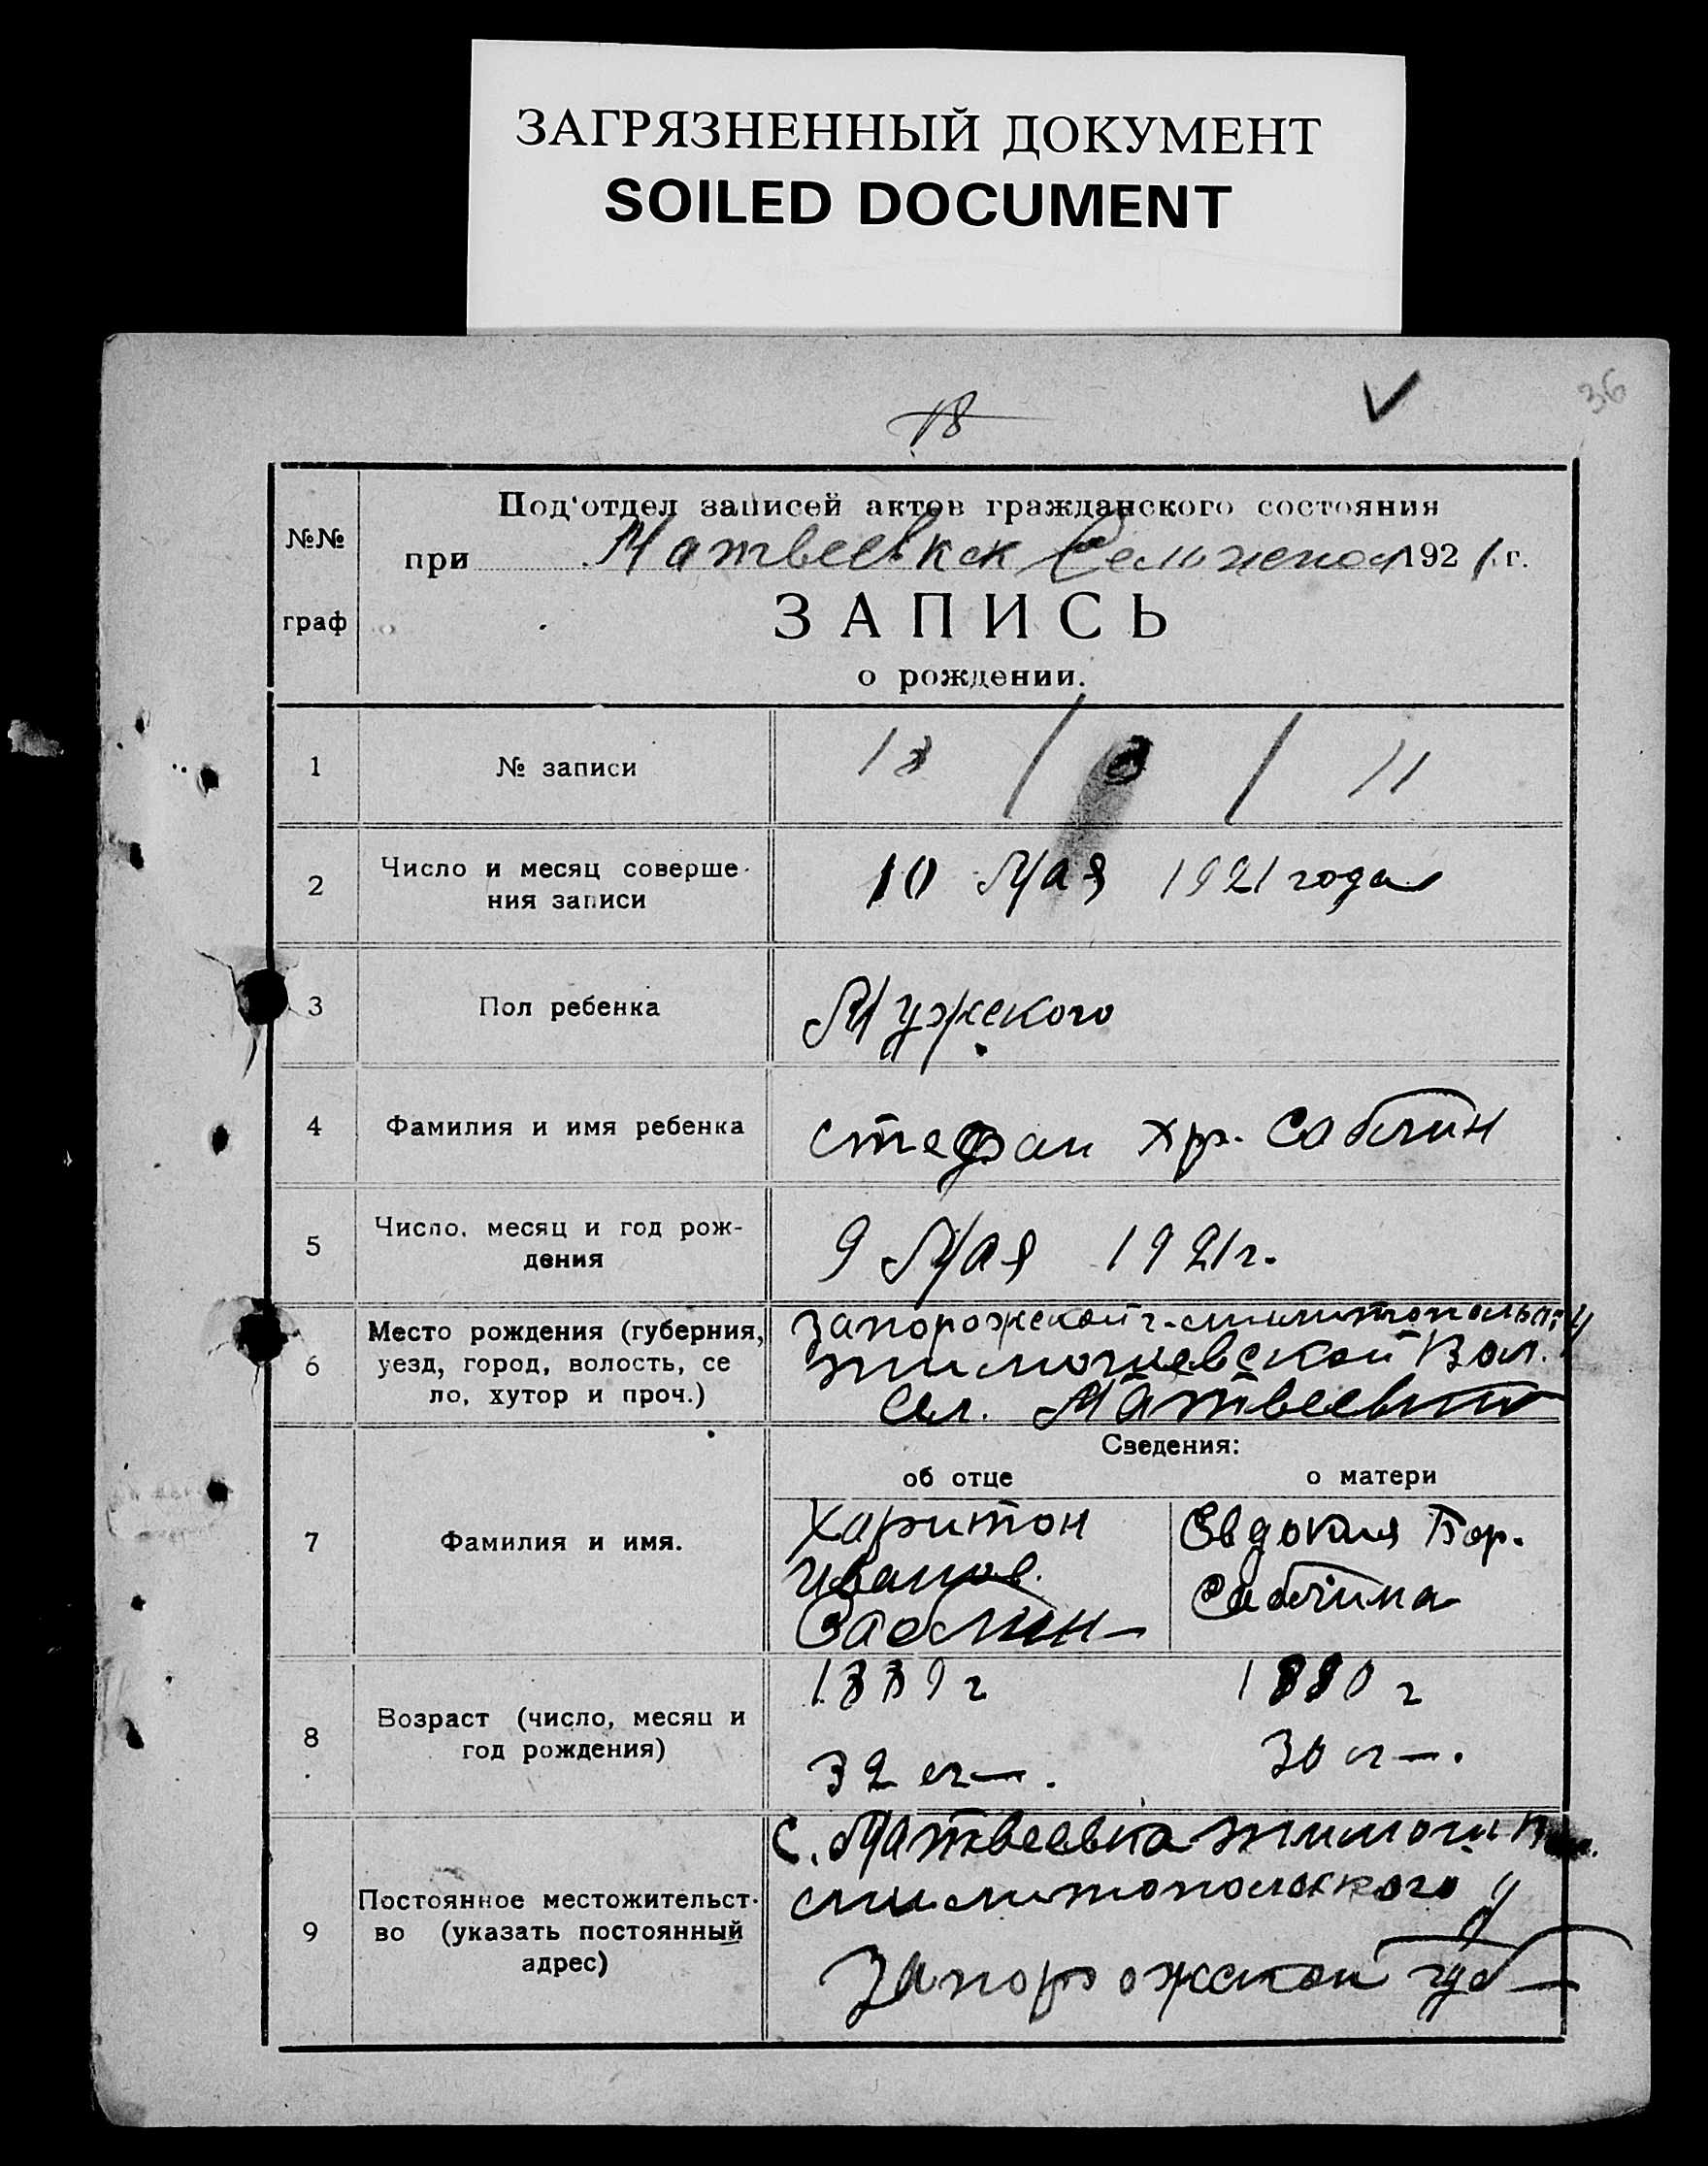 ЗАГРЯЗНЕННЫЙ ДОКУМЕНТ
SOILED DOCUMENT
36
18
№№
граф
Под'отдел записей актов гражданского состояния
при Матвеевкск 1921 г.
ЗАПИСЬ
о рождении.
1 № записи 18 / / 11
2 Число и месяц соверше-
ния записи
10 Мая 1921 года
3 Пол ребенка Мужского
4 Фамилия и имя ребенка Стефан Хар. Саблин
5 Число, месяц и год рож-
дения
9 Мая 1921 г.
6 Место рождения (губерния,
уезд, город, волость, се
ло, хутор и проч.)
Запорожской г.
Вол.
Сел. Матвеевка
Сведения:
об отце о матери
7 Фамилия и имя.
Харитон
Иванов.
Саблин
Евдокия
Саблина
8 Возраст (число, месяц и
год рождения)
1889 г
32
30
9 Постоянное местожительст-
во (указать постоянный
адрес)
с. Матвеевка
у
Запорожской губ